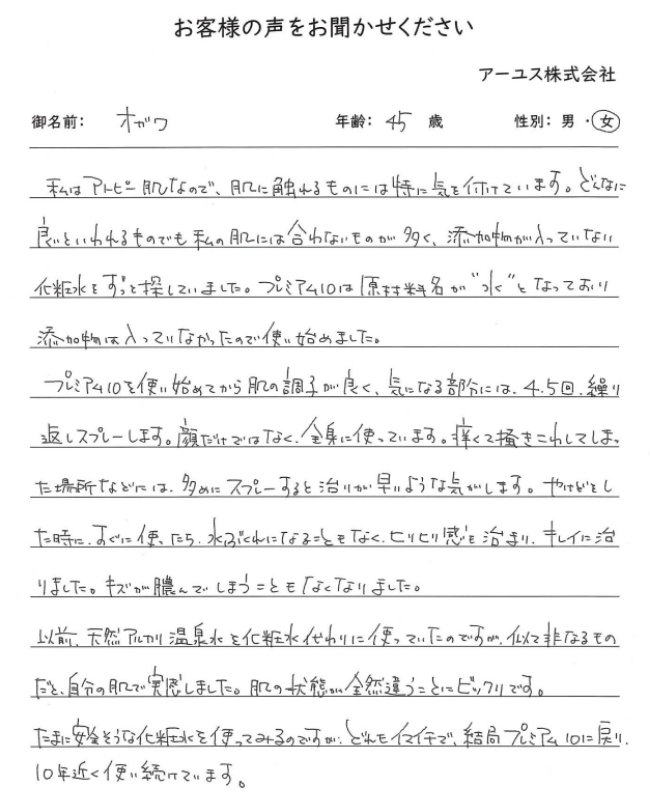 お客様の声をお聞かせください
アーユス株式会社
御名前： オガワ 年齢： 45 歳 性別： 男 ・ 女
私はアトピー肌なので、肌に触れるものには特に気を付けています。どんなに
良いといわれるものでも私の肌には合わないものが多く、添加物が入っていない
化粧水をずっと探していました。プレミアム10は原材料名が"水"となっており
添加物は入っていなかったので使い始めました。
プレミアム10を使い始めてから肌の調子が良く、気になる部分には、4.5回、繰り
返しスプレーします。顔だけではなく、全身に使っています。痒くて掻きこわしてしまっ
た場所などには、多めにスプレーすると治りが早いような気がします。やけどをし
た時に、すぐに使ったら、水ぶくれになることもなく、ヒリヒリ感も治まり、キレイに治
りました。キズが膿んでしまうこともなくなりました。
以前、天然アルカリ温泉水を化粧水代わりに使っていたのですが、似て非なるもの
だと、自分の肌で実感しました。肌の状態が全然違うことにビックリです。
たまに安全そうな化粧水を使ってみるのですが、どれもイマイチで、結局プレミアム10に戻り、
10年近く使い続けています。